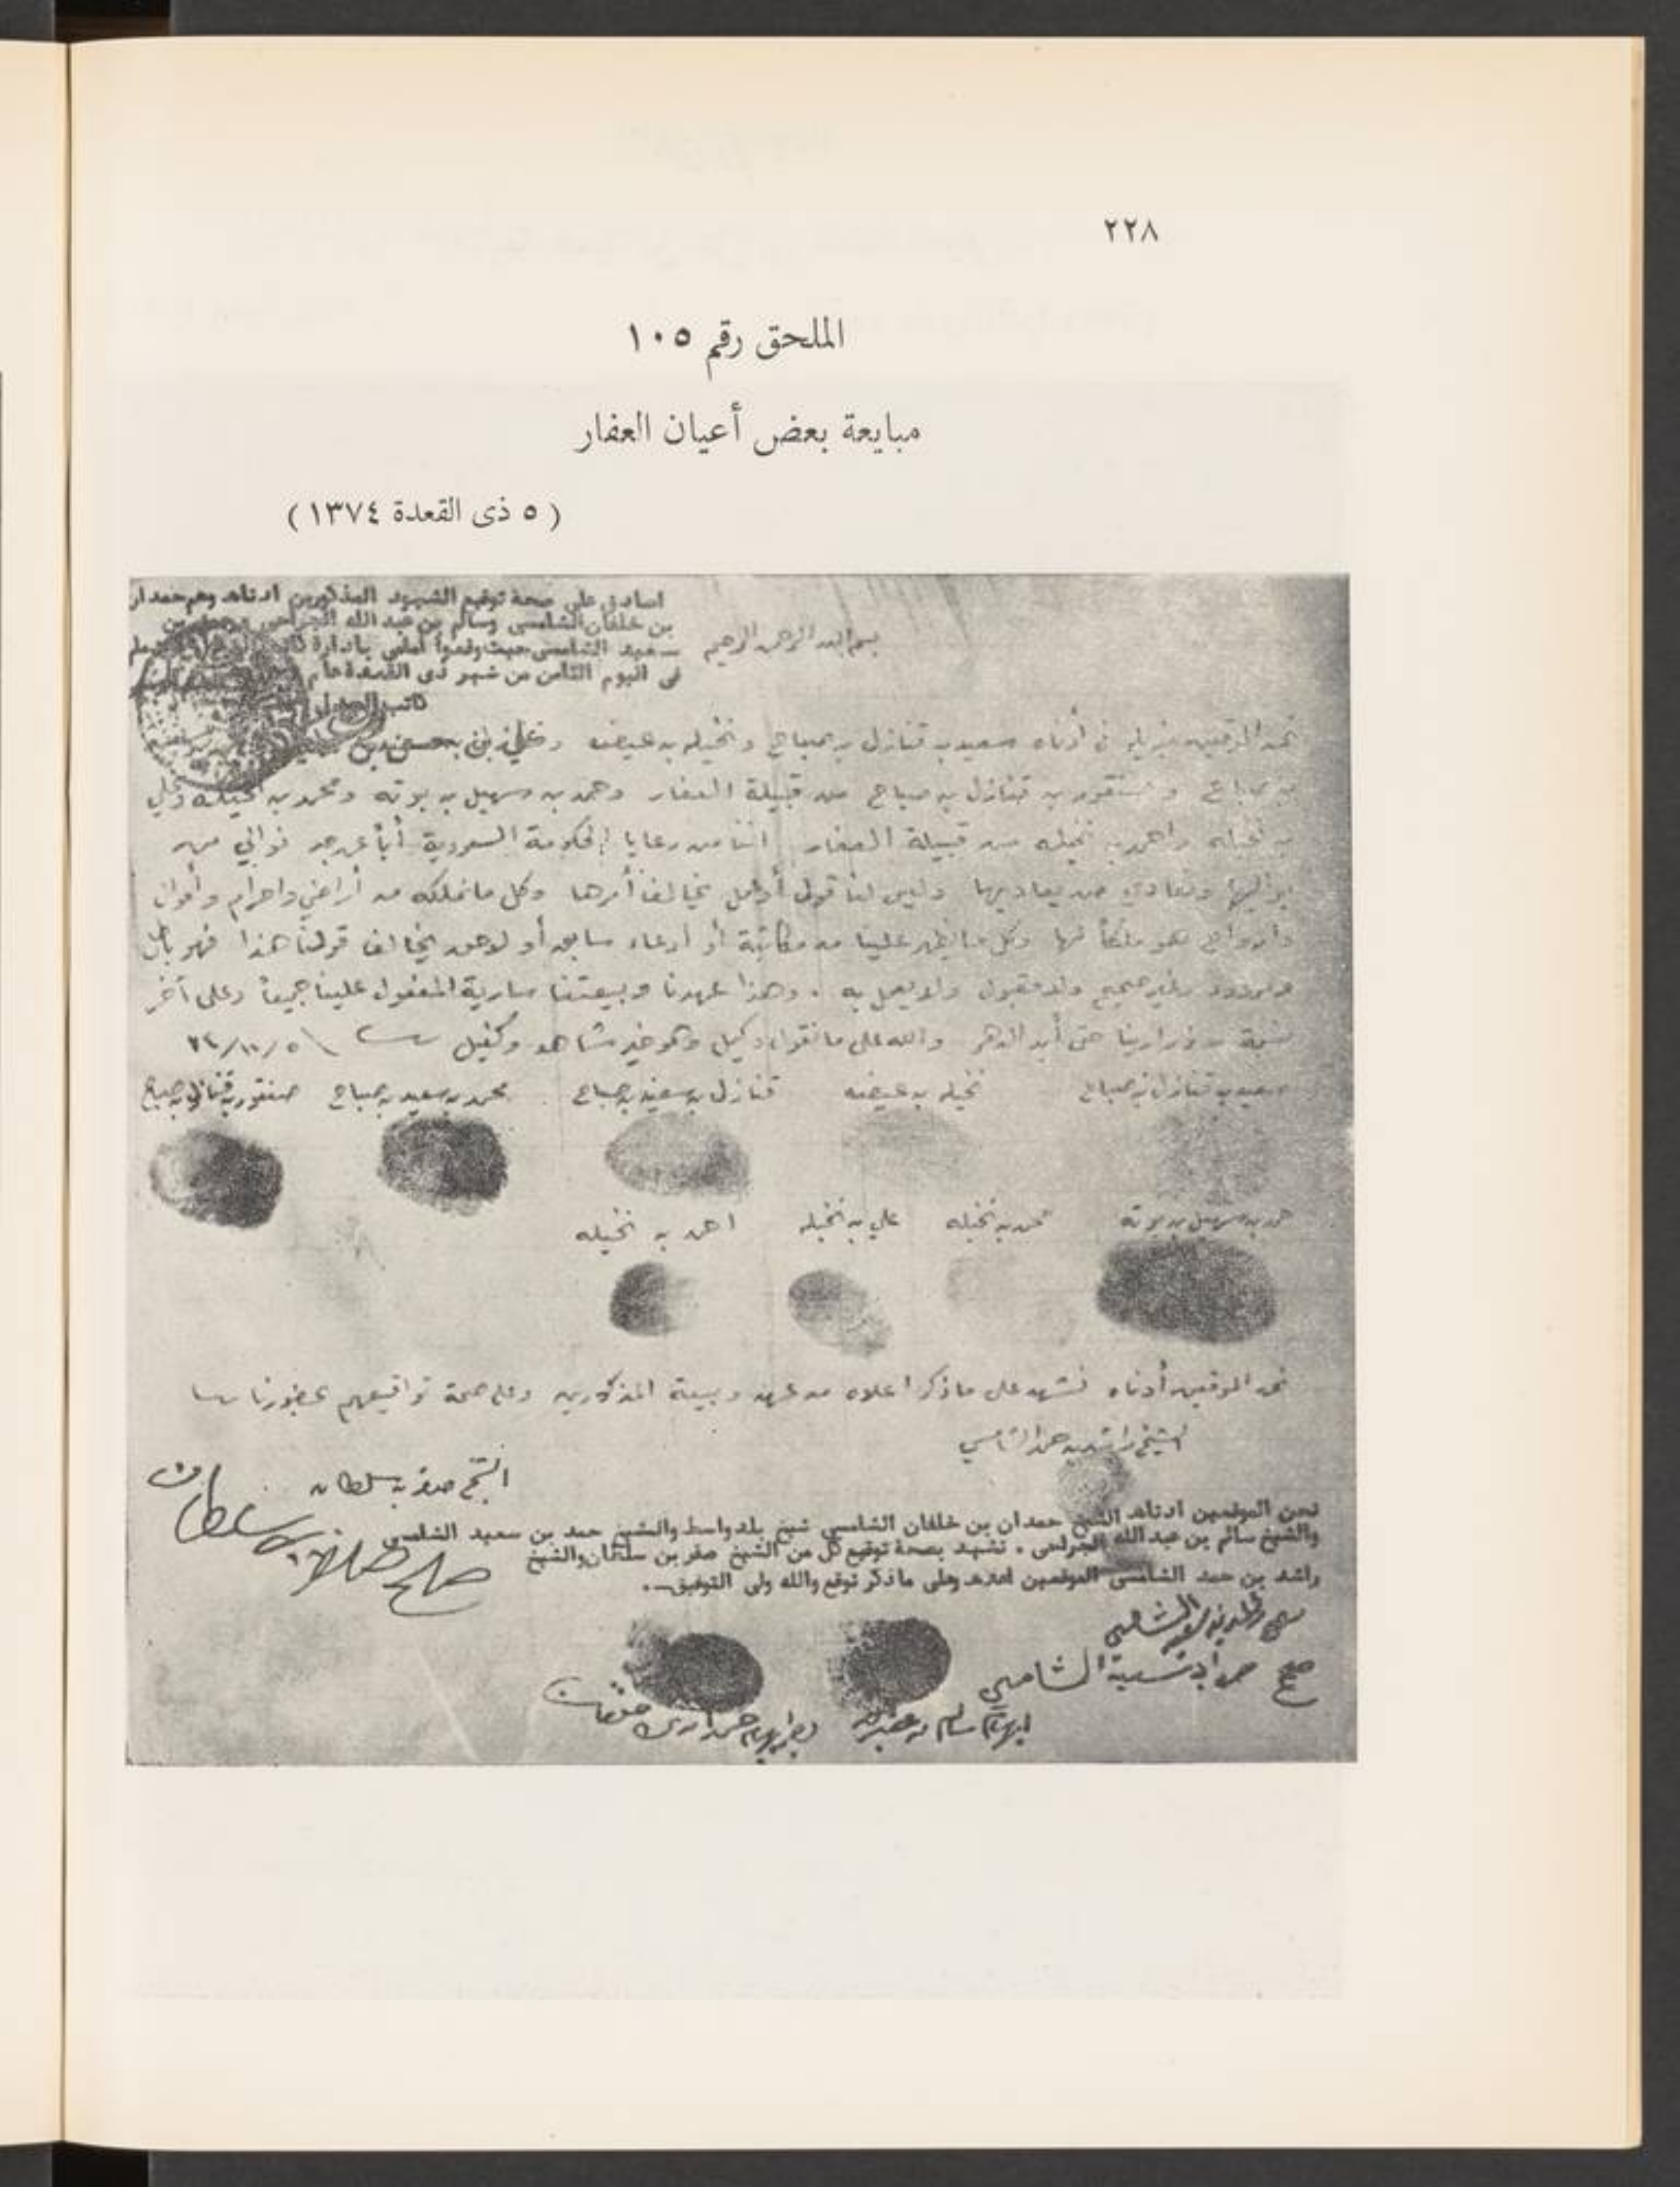 ٢٢٨
الملحق رقم ١٠٥
مبايعة بعض أعيان العفار
( ٥ ذى القعدة ١٣٧٤ )
اصادق على صحة توقيع الشهود المذكورين ادناه وهم حمدان
بن خلفان الشامسي وسالم بن عبد الله
سعيد الشامسي حيث وقعوا أمامي بادارة
في اليوم الثامن من شهر ذى القعدة عام
كاتب العدل
بسم الله الرحمن الرحيم
نحن الموقعين أدناه سعيد بن قنازل بن صباح ونخيله بن عيضه
بن صباح وصنقور بن قنازل بن صباح من قبيلة العفار وحمد بن سهيل بن بوته ومحمد بن نخيله وعلي
بن نخيله واحمد بن نخيله من قبيلة العفار اننا من رعايا الحكومة السعودية أباً عن جد نوالي من
يواليها ونعادي من يعاديها وليس لنا قول أو عمل يخالف أمرها وكل ما نملكه من أراضي واحرام وأموال
وأرواح هو ملكاً لها وكل ما يظهر علينا من مكاتبة أو ادعاء سابق أو لاحق يخالف قولنا هذا فهو باطل
ومردود وغير صحيح ولا مقبول ولا يعمل به . وهذا عهدنا وبيعتنا سارية المفعول علينا جميعاً وعلى آخر
نسمة من ذرارينا حتى أبد الدهر والله على ما نقول وكيل وهو خير شاهد وكفيل
سعيد بن قنازل بن صباح نخيله بن عيضه قنازل بن سعيد بن صباح محمد بن سعيد بن صباح صنقور بن قنازل بن صباح
حمد بن سهيل بن بوته محمد بن نخيله علي بن نخيله احمد بن نخيله
نحن الموقعين أدناه نشهد على ما ذكر اعلاه من عهد وبيعة المذكورين وعلى صحة تواقيعهم بحضورنا
الشيخ راشد بن حمد الشامسي
الشيخ صقر بن سلطان
نحن الموقعين ادناه الشيخ حمدان بن خلفان الشامسي شيخ بلد واسط والشيخ حمد بن سعيد الشامسي
والشيخ سالم بن عبد الله . نشهد بصحة توقيع كل من الشيخ صقر بن سلطان والشيخ
راشد بن حمد الشامسي الموقعين اعلاه وعلى ما ذكر نوقع والله ولي التوفيق .